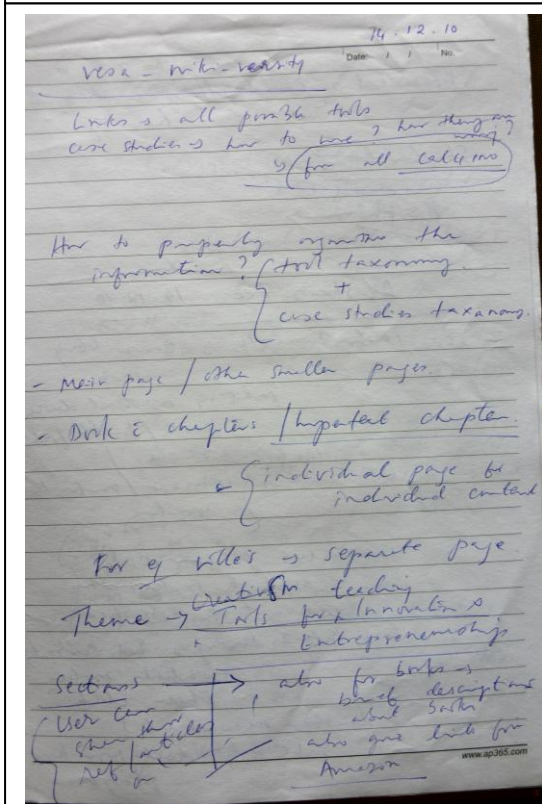 14.12.10
Date: / / No.
vesa - wiki-versity
Links → all possible tools
case studies → how to use? how they are
using?
↳ from all calcino
How to properly organise the
information? { tool taxonomy.
+
case studies taxonomy.
- Main page / other smaller pages.
- Book & chapters / important chapter.
{ individual page for
individual content
For eg ville's → separate page.
teaching
Theme → Tools for Innovation &
Entrepreneurship
Sections → also for books →
user can
brief descriptions
about books
ref / articles
also give links for
Amazon
www.ap365.com